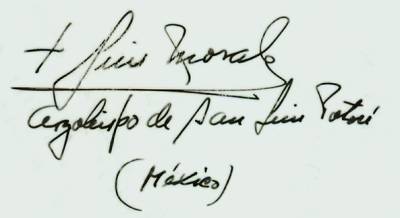 + Luis Morales
Arzobispo de San Luis Potosí
(México)